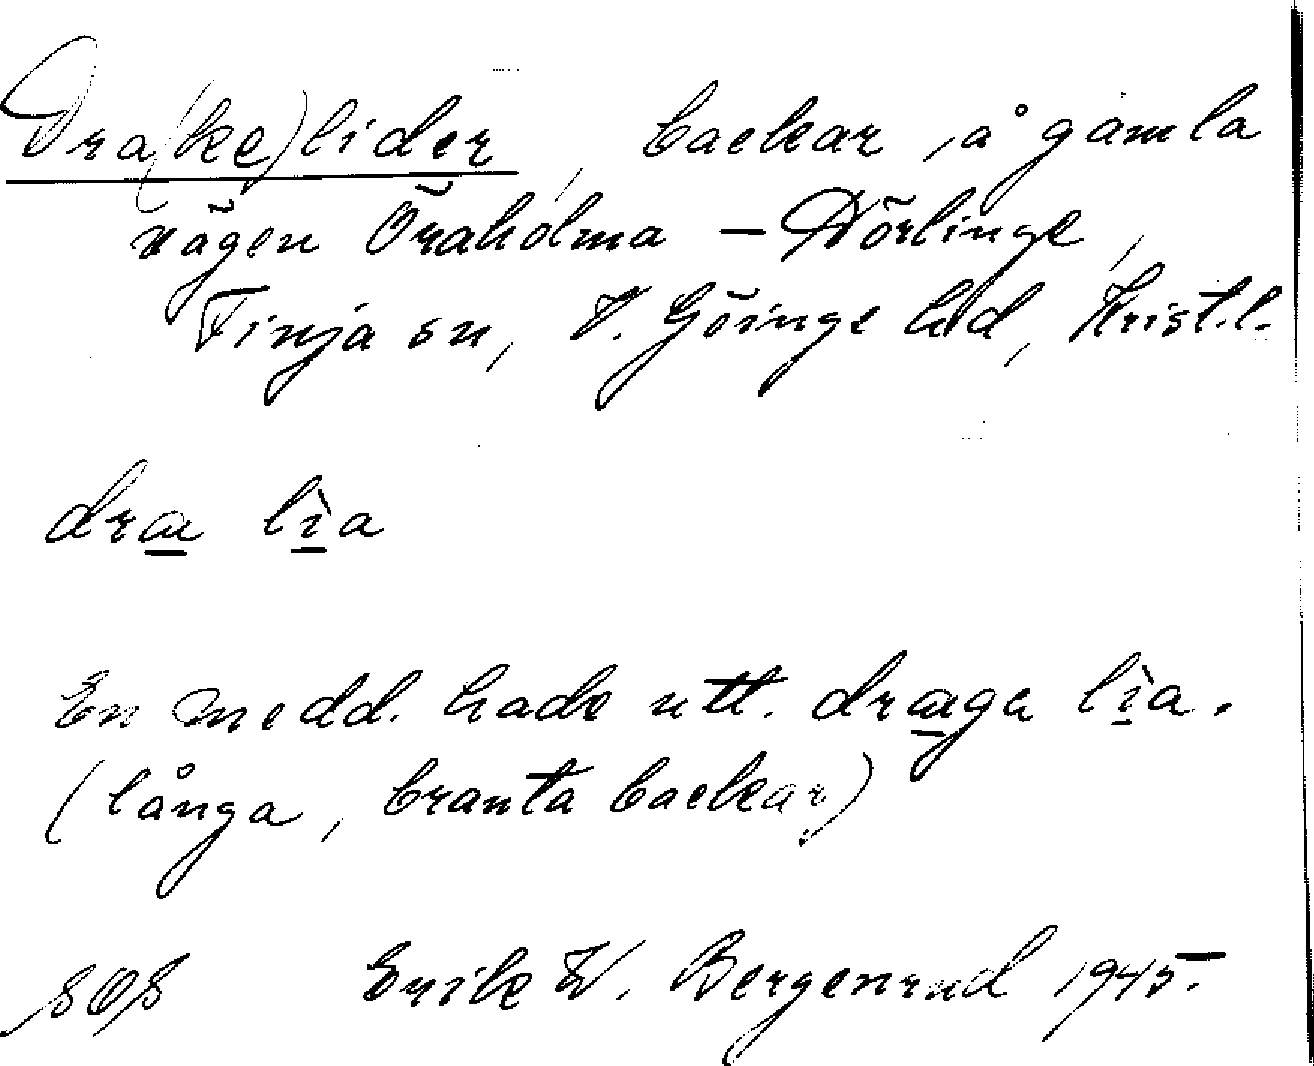 Dra(ke)lider, backar, å gamla
vägen Öraholma – Dörlinge,
Finja sn, V. Göinge hd, Krist.l.
dra lìa
En medd. hade utt. draga lìa.
(långa, branta backar)
Erik W. Bergenrud 1945.